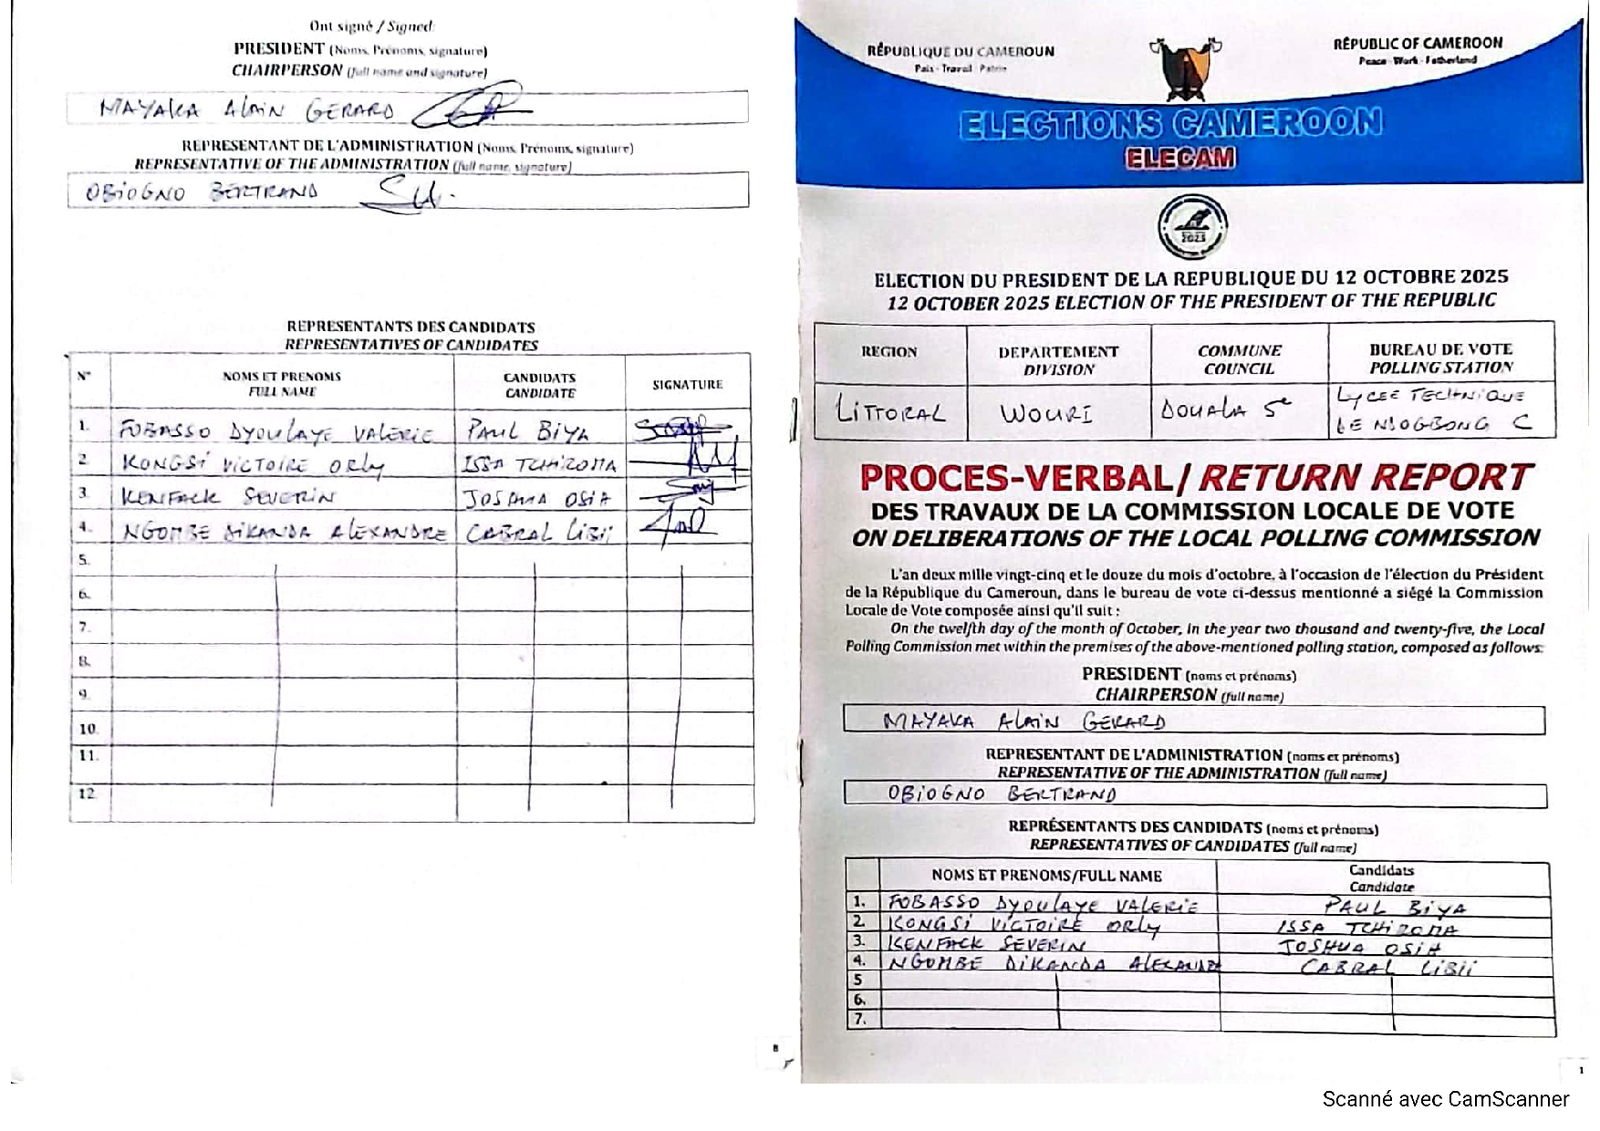 Ont signé / Signed:
PRESIDENT (Noms, Prénoms, signature)
CHAIRPERSON (full name and signature)
MAYAKA ALAIN GERARD
REPRESENTANT DE L'ADMINISTRATION (Noms, Prénoms, signature)
REPRESENTATIVE OF THE ADMINISTRATION (full name, signature)
OBIOGNO BERTRAND
REPRESENTANTS DES CANDIDATS
REPRESENTATIVES OF CANDIDATES
N° NOMS ET PRENOMS FULL NAME CANDIDATS CANDIDATE SIGNATURE
1. FOBASSO DYOULAYE VALERIE PAUL BIYA
2. KONGSI VICTOIRE ORLY ISSA TCHIROMA
3. KENFACK SEVERIN JOSHUA OSIH
4. NGOMBE DIKANDA ALEXANDRE CABRAL LIBII
5.
6.
7.
8.
9.
10.
11.
12.
8
RÉPUBLIQUE DU CAMEROUN
Paix - Travail - Patrie
RÉPUBLIC OF CAMEROON
Peace - Work - Fatherland
ELECTIONS CAMEROON
ELECAM
2025
ELECTION DU PRESIDENT DE LA REPUBLIQUE DU 12 OCTOBRE 2025
12 OCTOBER 2025 ELECTION OF THE PRESIDENT OF THE REPUBLIC
REGION DEPARTEMENT DIVISION COMMUNE COUNCIL BUREAU DE VOTE POLLING STATION
LITTORAL WOURI DOUALA 5e LYCEE TECHNIQUE DE NDOGBONG C
PROCES-VERBAL / RETURN REPORT
DES TRAVAUX DE LA COMMISSION LOCALE DE VOTE
ON DELIBERATIONS OF THE LOCAL POLLING COMMISSION
L'an deux mille vingt-cinq et le douze du mois d'octobre, à l'occasion de l'élection du Président
de la République du Cameroun, dans le bureau de vote ci-dessus mentionné a siégé la Commission
Locale de Vote composée ainsi qu'il suit :
On the twelfth day of the month of October, in the year two thousand and twenty-five, the Local
Polling Commission met within the premises of the above-mentioned polling station, composed as follows:
PRESIDENT (noms et prénoms)
CHAIRPERSON (full name)
MAYAKA ALAIN GERARD
REPRESENTANT DE L'ADMINISTRATION (noms et prénoms)
REPRESENTATIVE OF THE ADMINISTRATION (full name)
OBIOGNO BERTRAND
REPRÉSENTANTS DES CANDIDATS (noms et prénoms)
REPRESENTATIVES OF CANDIDATES (full name)
NOMS ET PRENOMS/FULL NAME Candidats Candidate
1. FOBASSO DYOULAYE VALERIE PAUL BIYA
2. KONGSI VICTOIRE ORLY ISSA TCHIROMA
3. KENFACK SEVERIN JOSHUA OSIH
4. NGOMBE DIKANDA ALEXANDRE CABRAL LIBII
5
6.
7.
1
Scanné avec CamScanner